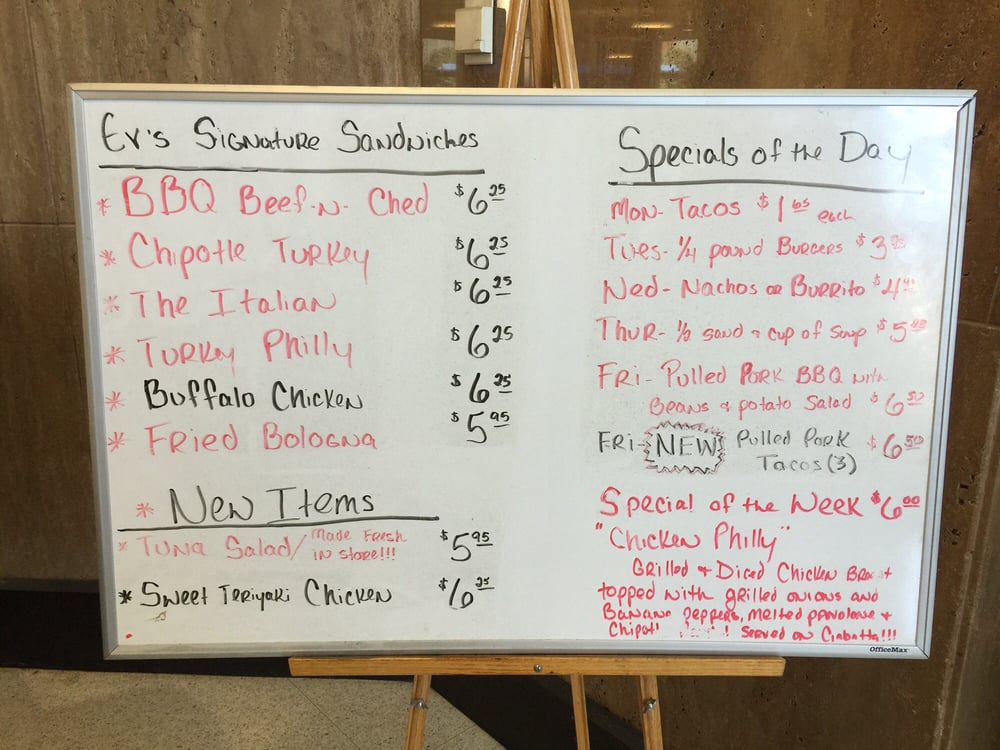 Ev's Signature Sandwiches
* BBQ Beef-N-Ched $6.25
* Chipotle Turkey $6.25
* The Italian $6.25
* Turkey Philly $6.25
* Buffalo Chicken $6.25
* Fried Bologna $5.95
* New Items
* Tuna Salad/ Made Fresh $5.95
in store!!!
* Sweet Teriyaki Chicken $6.25
Specials of the Day
Mon- Tacos $1.65 each
Tues- 1/4 pound Burgers
Wed- Nachos or Burrito
Thur- 1/2 sand & cup of soup
Fri- Pulled Pork BBQ with
Beans & potato Salad $6.50
Fri- NEW Pulled Pork $6.50
Tacos (3)
Special of the Week $6.00
"Chicken Philly"
Grilled & Diced Chicken
topped with grilled onions and
Banana peppers, melted provolone &
! Served on Ciabatta!!!
OfficeMax